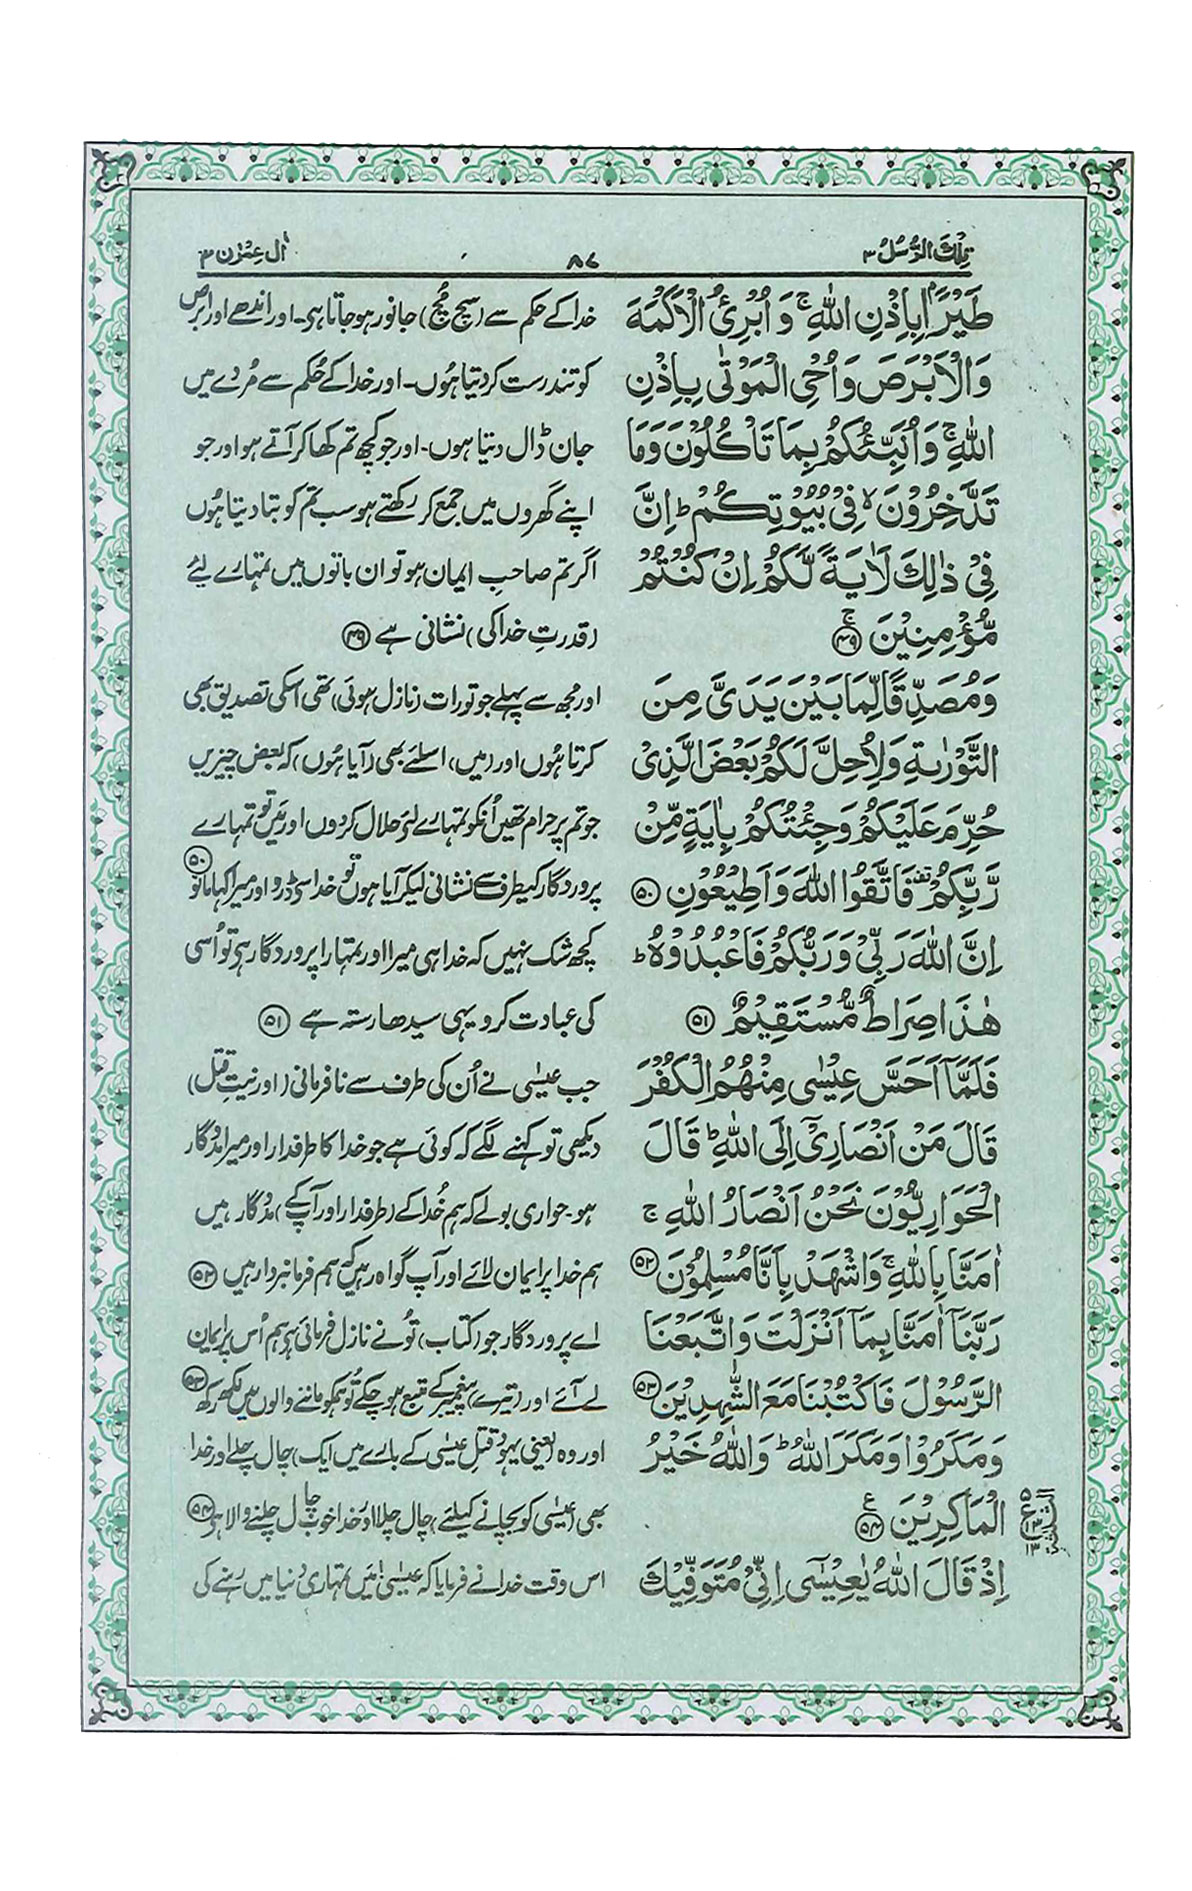 تِلْكَ الرُّسُلُ ۳
۸۷
اٰل عِمْرٰن ۳
طَيْرًۢا بِاِذْنِ اللّٰهِ ۚ وَ اُبْرِئُ الْاَكْمَهَ
وَالْاَبْرَصَ وَاُحْيِ الْمَوْتٰى بِاِذْنِ
اللّٰهِ ۚ وَاُنَبِّئُكُمْ بِمَا تَاْكُلُوْنَ وَمَا
تَدَّخِرُوْنَ ۙ فِيْ بُيُوْتِكُمْ ؕ اِنَّ
فِيْ ذٰلِكَ لَاٰيَةً لَّكُمْ اِنْ كُنْتُمْ
مُّؤْمِنِيْنَ ۚ ﴿۴۹﴾
وَمُصَدِّقًا لِّمَا بَيْنَ يَدَيَّ مِنَ
التَّوْرٰىةِ وَلِاُحِلَّ لَكُمْ بَعْضَ الَّذِيْ
حُرِّمَ عَلَيْكُمْ وَجِئْتُكُمْ بِاٰيَةٍ مِّنْ
رَّبِّكُمْ فَاتَّقُوا اللّٰهَ وَاَطِيْعُوْنِ ﴿۵۰﴾
اِنَّ اللّٰهَ رَبِّيْ وَرَبُّكُمْ فَاعْبُدُوْهُ ؕ
هٰذَا صِرَاطٌ مُّسْتَقِيْمٌ ﴿۵۱﴾
فَلَمَّاۤ اَحَسَّ عِيْسٰى مِنْهُمُ الْكُفْرَ
قَالَ مَنْ اَنْصَارِيْۤ اِلَى اللّٰهِ ؕ قَالَ
الْحَوَارِيُّوْنَ نَحْنُ اَنْصَارُ اللّٰهِ ۚ
اٰمَنَّا بِاللّٰهِ ۚ وَاشْهَدْ بِاَنَّا مُسْلِمُوْنَ ﴿۵۲﴾
رَبَّنَاۤ اٰمَنَّا بِمَاۤ اَنْزَلْتَ وَاتَّبَعْنَا
الرَّسُوْلَ فَاكْتُبْنَا مَعَ الشّٰهِدِيْنَ ﴿۵۳﴾
وَمَكَرُوْا وَمَكَرَ اللّٰهُ ؕ وَاللّٰهُ خَيْرُ
الْمَاكِرِيْنَ ﴿۵۴﴾ ع
اِذْ قَالَ اللّٰهُ يٰعِيْسٰۤى اِنِّيْ مُتَوَفِّيْكَ
خدا کے حکم سے (سچ مُچ) جانور ہو جاتا ہی۔ اور اندھے اور ابرص
کو تندرست کر دیتا ہُوں۔ اور خدا کے حُکم سے مُردے میں
جان ڈال دیتا ہوں۔ اور جو کچھ تم کھا کر آتے ہو اور جو
اپنے گھروں میں جمع کر رکھتے ہو سب تم کو بتا دیتا ہُوں
اگر تم صاحبِ ایمان ہو تو ان باتوں میں تمہارے لئے
(قدرتِ خدا کی) نشانی ہے ﴿۴۹﴾
اور مُجھ سے پہلے جو تورات (نازل ہوئی) تھی اسکی تصدیق بھی
کرتا ہُوں اور (میں) اسلئے بھی (آیا ہُوں) کہ بعض چیزیں
جو تم پر حرام تھیں اُنکو تمہارے لئے حلال کر دوں اور مَیں تو تمہارے
پروردگار کیطرف سے نشانی لیکر آیا ہوں تو خدا سی ڈرو اور میرا کہا مانو ﴿۵۰﴾
کچھ شک نہیں کہ خدا ہی میرا اور تمہارا پروردگار ہی تو اُسی
کی عبادت کرو یہی سیدھا رستہ ہے ﴿۵۱﴾
جب عیسٰی نے اُن کی طرف سے نافرمانی (اور نیتِ قتل)
دیکھی تو کہنے لگے کہ کوئی ہے جو خدا کا طرفدار اور میرا مددگار
ہو۔ حواری بولے کہ ہم خُدا کے (طرفدار اور آپ کے) مددگار ہیں
ہم خدا پر ایمان لائے اور آپ گواہ رہیں کہ ہم فرمانبردار ہیں ﴿۵۲﴾
اے پروردگار جو (کتاب) تُو نے نازل فرمائی ہی ہم اُس پر ایمان
لے آئے اور (تیرے) پیغمبر کے متبع ہو چکے تُو ہمکو ماننے والوں میں لکھ رکھ ﴿۵۳﴾
اور وہ (یعنی یہود قتلِ عیسٰی کے بارے میں ایک) چال چلے اور خدا
بھی (عیسٰی کو بچانے کیلئے) چال چلا اور خدا خوب چال چلنے والا ہی ﴿۵۴﴾
اس وقت خدا نے فرمایا کہ عیسٰی! مَیں تمہاری دُنیا میں رہنے کی